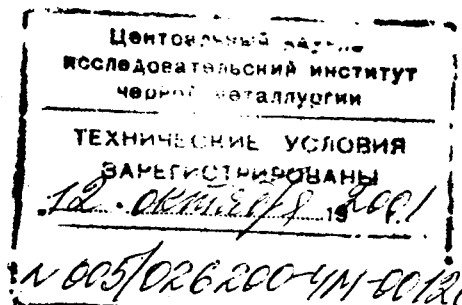 Центральный научно
исследовательский институт
черной металлургии
ТЕХНИЧЕСКИЕ УСЛОВИЯ
ЗАРЕГИСТРИРОВАНЫ
12 . октября 19 2001
N 005/026200-ЧМ-0012